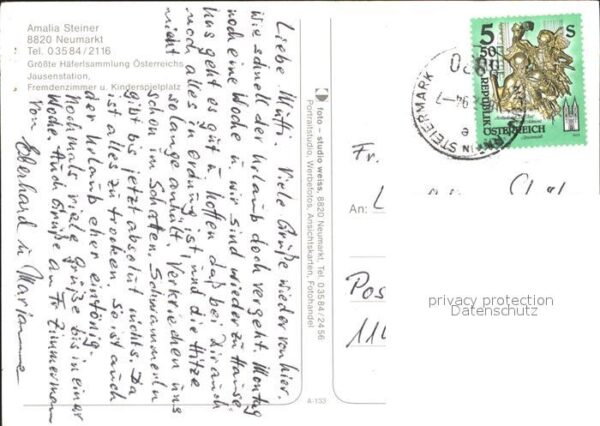 Amalia Steiner
8820 Neumarkt
Tel. 03584/2116
Größte Häferlsammlung Österreichs
Jausenstation,
Fremdenzimmer u. Kinderspielplatz
Liebe Mutti. Viele Grüße wieder von hier.
Wie schnell der Urlaub doch vergeht. Montag
noch eine Woche u. wir sind wieder zu Hause
Uns geht es gut u. hoffen daß bei Dir auch
noch alles in Ordnung ist, und die Hitze
nicht so lange anhält. Verkriechen uns
schon im Schatten. Schwammerln
gibt bis jetzt absolut nichts. Da
ist alles zu trocken, so ist auch
der Urlaub eher eintönig.
Nochmals viele Grüße bis in einer
Woche. Auch Grüße an Fr. Zimmermann
von Eberhard u Marianne
foto – studio weiss, 8820 Neumarkt, Tel. 03584/2456
Portraitstudio, Werbefotos, Ansichtskarten, Fotohandel
A-133
5 S
50
REPUBLIK
ÖSTERREICH
IN STEIERMARK
8820
Fr.
An:
Pos
114
privacy protection
Datenschutz